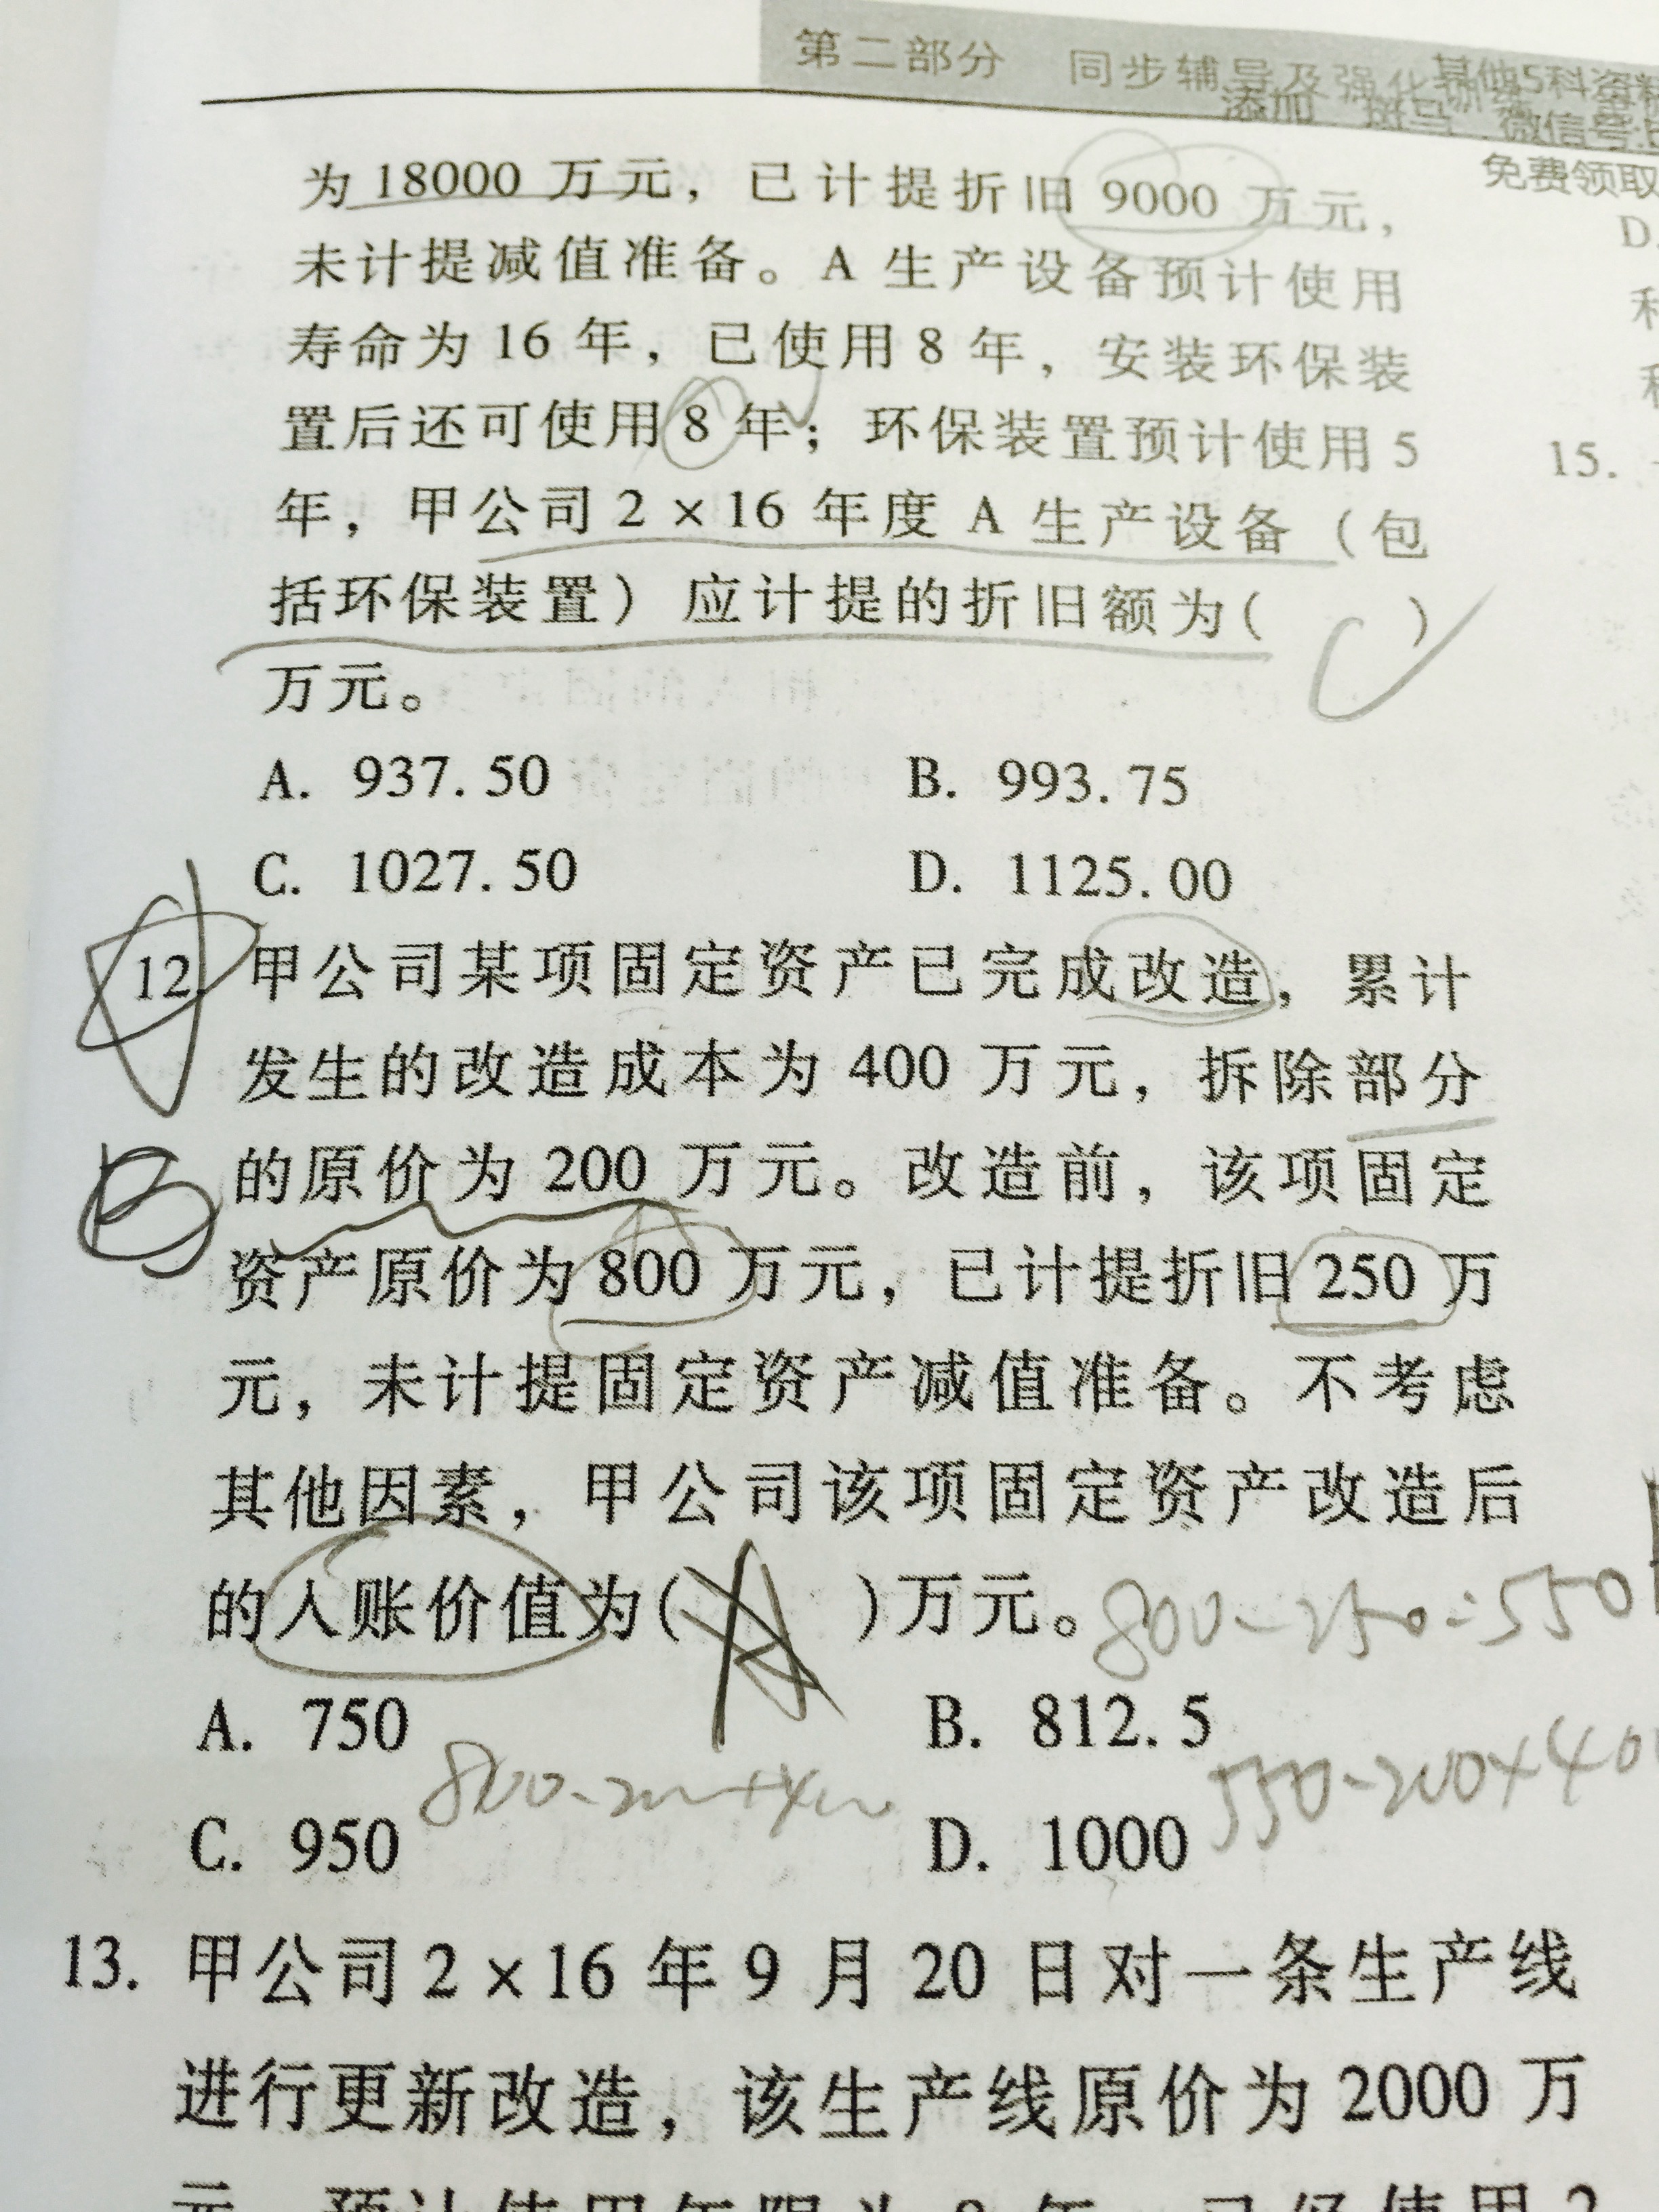 第二部分 同步辅导及强化
其他5科资料
添加 斑马 微信号:
免费领取
为 18000 万元，已计提折旧 9000 万元，
未计提减值准备。A 生产设备预计使用
寿命为 16 年，已使用 8 年，安装环保装
置后还可使用 8 年；环保装置预计使用 5
年，甲公司 2 × 16 年度 A 生产设备（包
括环保装置）应计提的折旧额为( C )
万元。
A. 937.50 B. 993.75
C. 1027.50 D. 1125.00
12 甲公司某项固定资产已完成改造，累计
发生的改造成本为 400 万元，拆除部分
的原价为 200 万元。改造前，该项固定
资产原价为 800 万元，已计提折旧 250 万
元，未计提固定资产减值准备。不考虑
其他因素，甲公司该项固定资产改造后
的入账价值为( )万元。
800-250=550
A. 750 B. 812.5
800-200+400
550-200+400
C. 950 D. 1000
13. 甲公司 2 × 16 年 9 月 20 日对一条生产线
进行更新改造，该生产线原价为 2000 万
元，预计使用年限为 8 年，已经使用 2
D.
15.